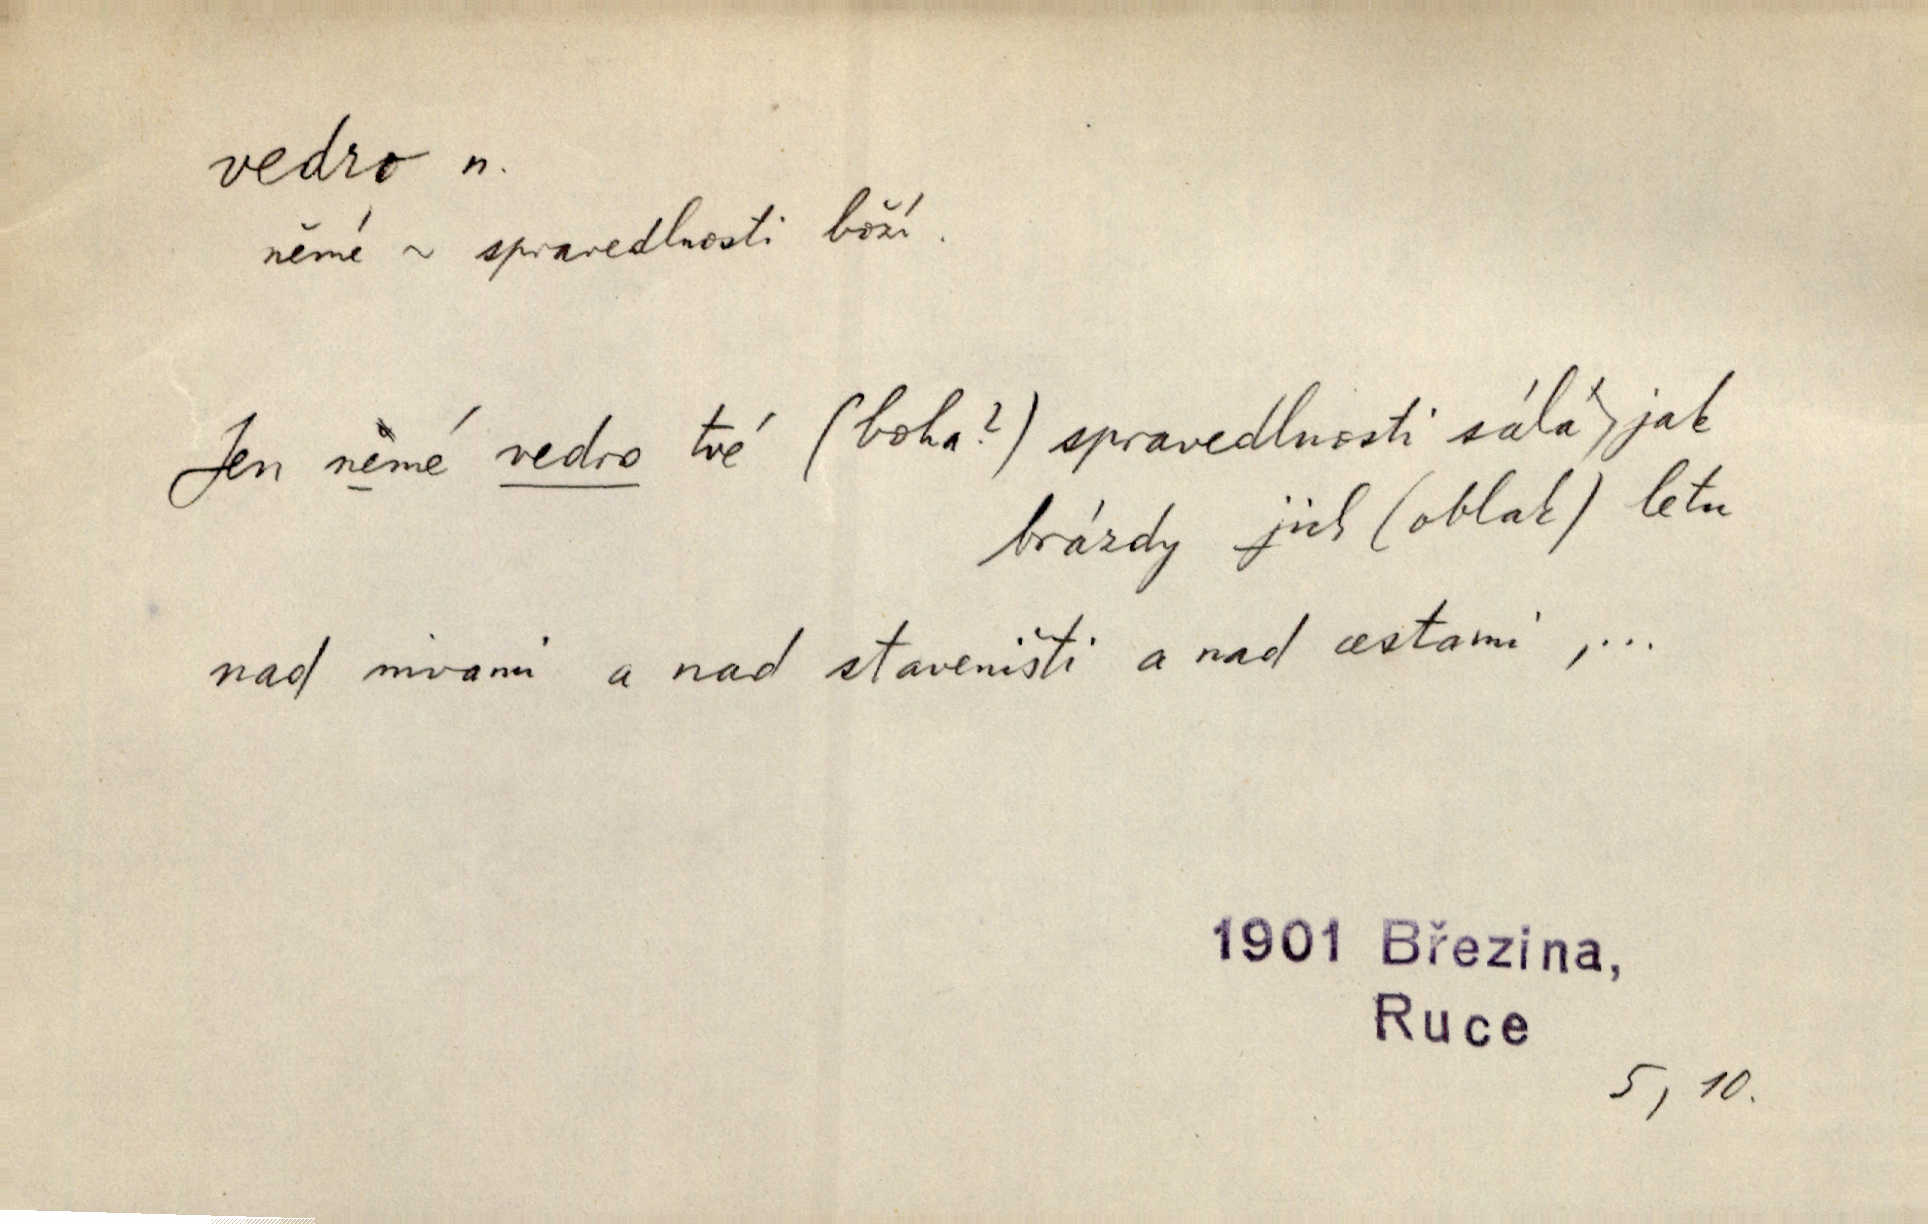 vedro n.
němé ~ spravedlnosti boží.
Jen němé vedro tvé (boha?) spravedlnosti sálá, jak
brázdy jich (oblak) letu
nad nivami a nad staveništi a nad cestami,...
1901 Březina,
Ruce
5, 10.